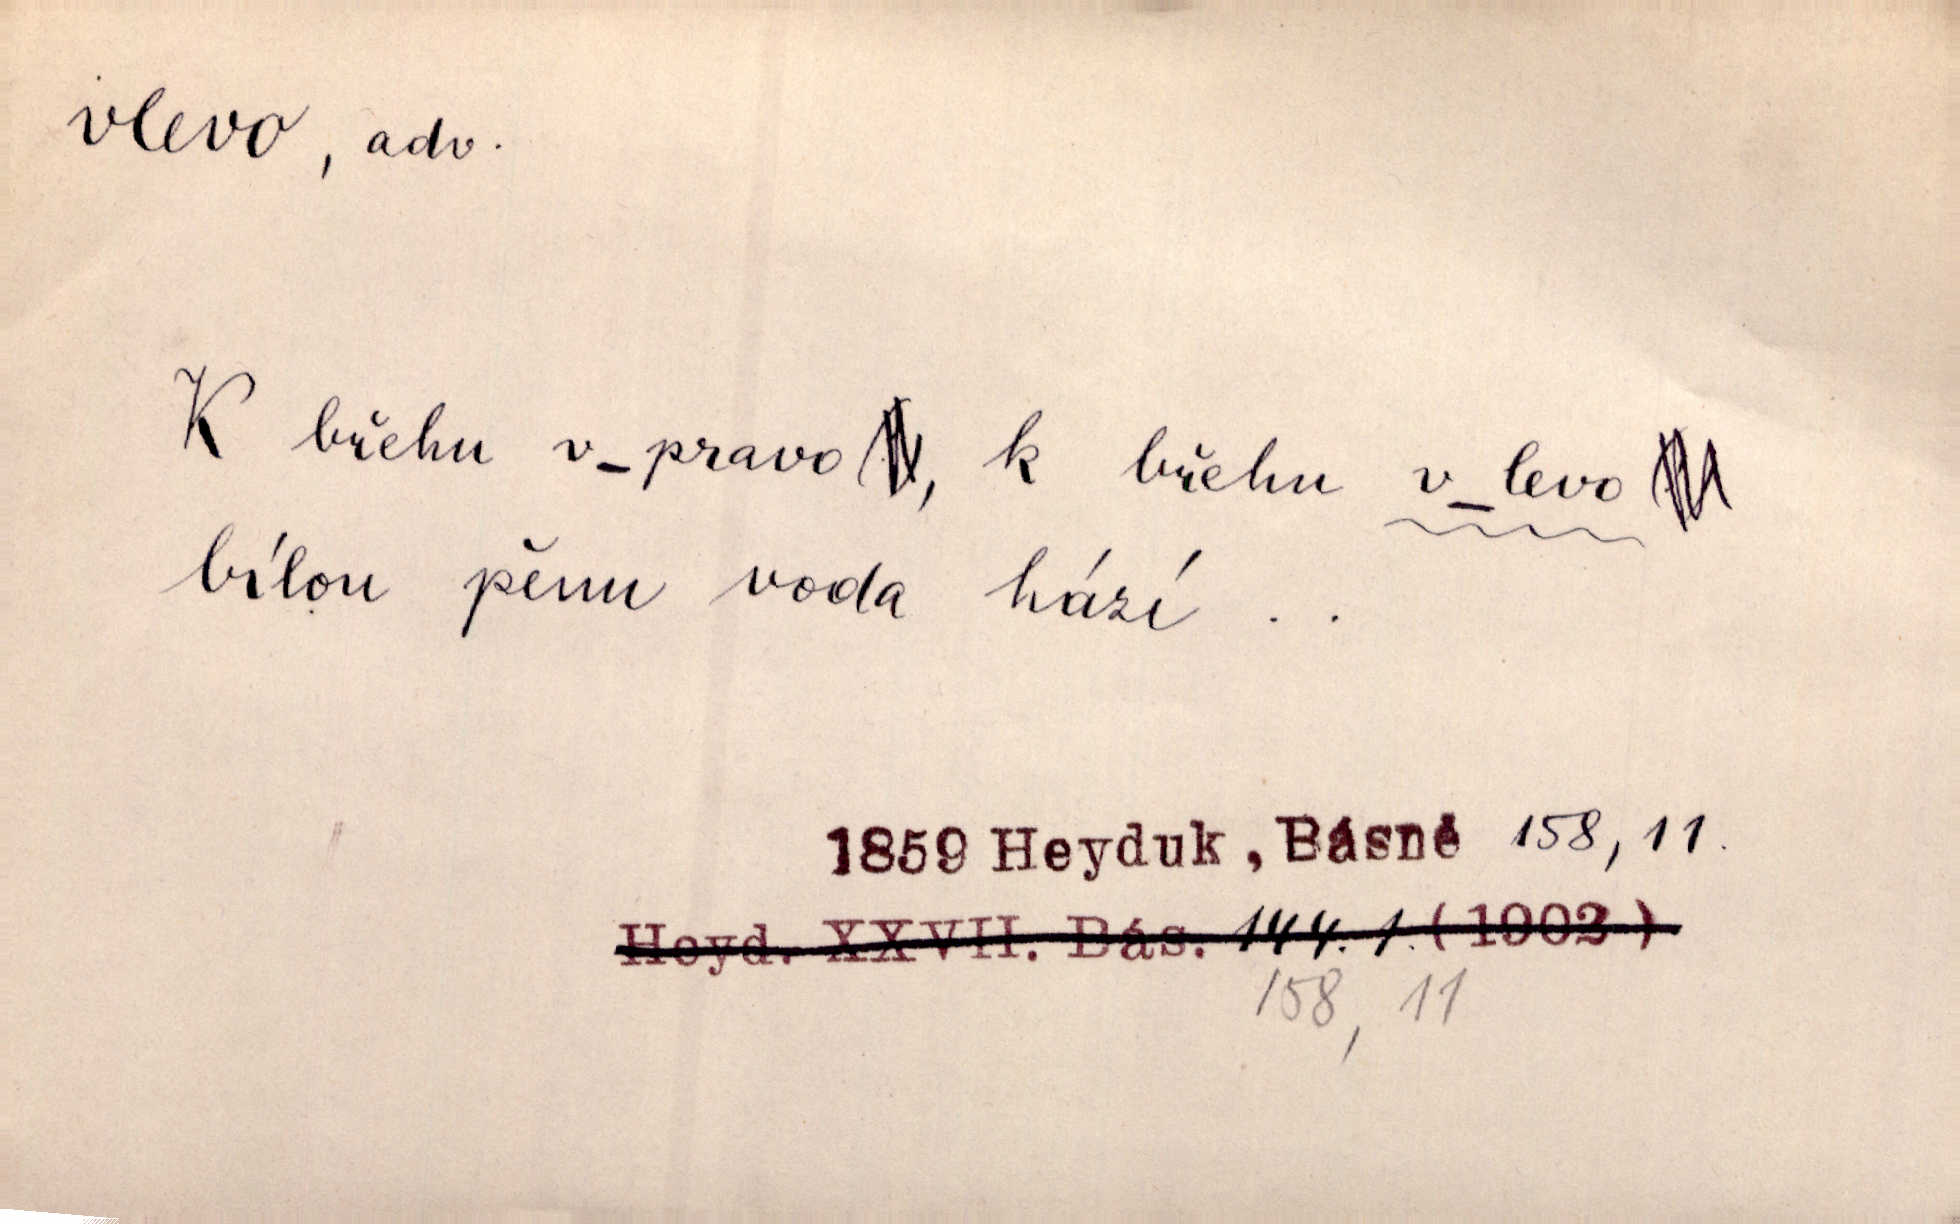 vlevo, adv.
K břehu v_pravo, k břehu v_levo
bílou pěnu voda hází . .
1859 Heyduk, Básně 158, 11.
Heyd. XXVII. Bás. 144. 1. (1902)
158, 11